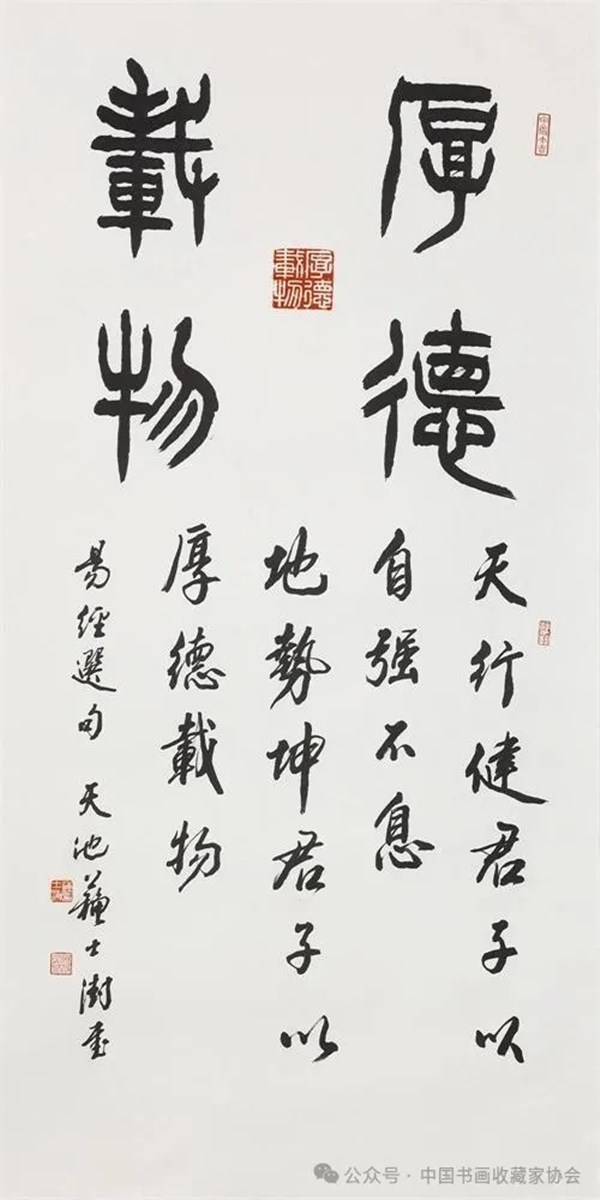 厚德
載物
厚德載物
天行健君子以
自强不息
地勢坤君子以
厚德載物
易經選句 天池蘇士澍書
公众号·中国书画收藏家协会